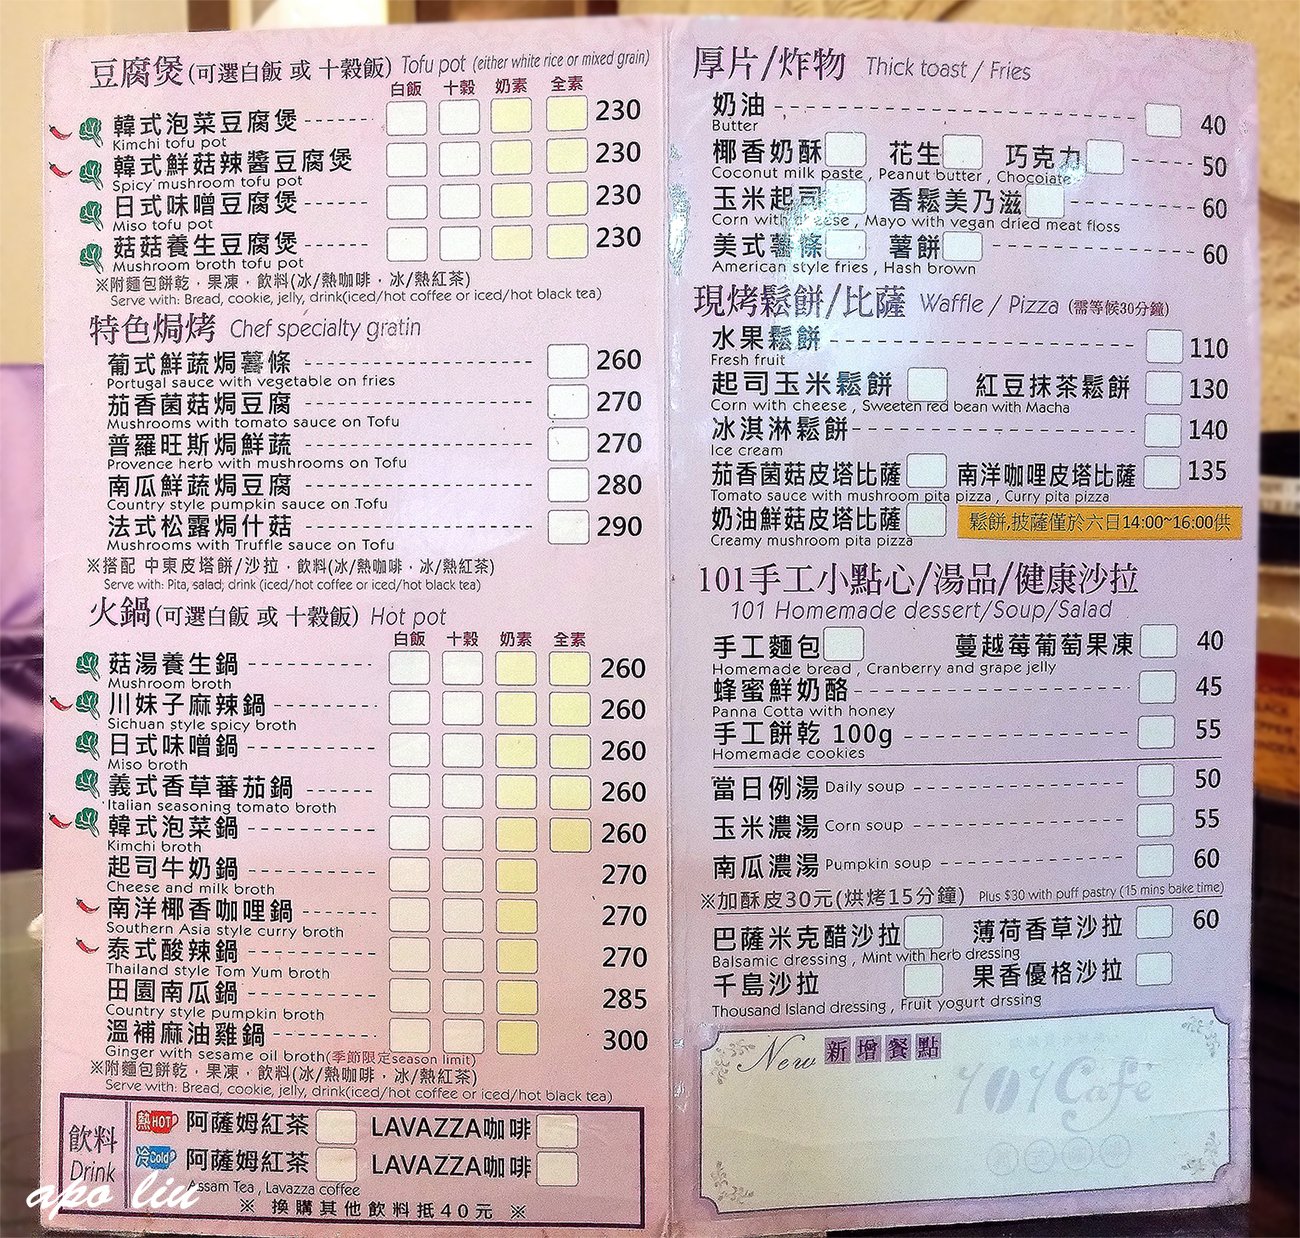 豆腐煲(可選白飯 或 十穀飯) Tofu pot (either white rice or mixed grain)
白飯 十穀 奶素 全素
韓式泡菜豆腐煲 230
Kimchi tofu pot
韓式鮮菇辣醬豆腐煲 230
Spicy mushroom tofu pot
日式味噌豆腐煲 230
Miso tofu pot
菇菇養生豆腐煲 230
Mushroom broth tofu pot
※附麵包餅乾，果凍，飲料(冰/熱咖啡，冰/熱紅茶)
Serve with: Bread, cookie, jelly, drink(iced/hot coffee or iced/hot black tea)
特色焗烤 Chef specialty gratin
葡式鮮蔬焗薯條 260
Portugal sauce with vegetable on fries
茄香菌菇焗豆腐 270
Mushrooms with tomato sauce on Tofu
普羅旺斯焗鮮蔬 270
Provence herb with mushrooms on Tofu
南瓜鮮蔬焗豆腐 280
Country style pumpkin sauce on Tofu
法式松露焗什菇 290
Mushrooms with Truffle sauce on Tofu
※搭配 中東皮塔餅/沙拉，飲料(冰/熱咖啡，冰/熱紅茶)
Serve with: Pita, salad; drink (iced/hot coffee or iced/hot black tea)
火鍋(可選白飯 或 十穀飯) Hot pot
白飯 十穀 奶素 全素
菇湯養生鍋 260
Mushroom broth
川妹子麻辣鍋 260
Sichuan style spicy broth
日式味噌鍋 260
Miso broth
義式香草蕃茄鍋 260
Italian seasoning tomato broth
韓式泡菜鍋 260
Kimchi broth
起司牛奶鍋 270
Cheese and milk broth
南洋椰香咖哩鍋 270
Southern Asia style curry broth
泰式酸辣鍋 270
Thailand style Tom Yum broth
田園南瓜鍋 285
Country style pumpkin broth
溫補麻油雞鍋 300
Ginger with sesame oil broth(季節限定season limit)
※附麵包餅乾，果凍，飲料(冰/熱咖啡，冰/熱紅茶)
Serve with: Bread, cookie, jelly, drink(iced/hot coffee or iced/hot black tea)
飲料
Drink
熱HOT 阿薩姆紅茶 LAVAZZA咖啡
冷Cold 阿薩姆紅茶 LAVAZZA咖啡
Assam Tea , Lavazza coffee
※ 換購其他飲料抵40元 ※
apo liu
厚片/炸物 Thick toast / Fries
奶油 40
Butter
椰香奶酥 花生 巧克力 50
Coconut milk paste , Peanut butter , Chocolate
玉米起司 香鬆美乃滋 60
Corn with cheese , Mayo with vegan dried meat floss
美式薯條 薯餅 60
American style fries , Hash brown
現烤鬆餅/比薩 Waffle / Pizza (需等候30分鐘)
水果鬆餅 110
Fresh fruit
起司玉米鬆餅 紅豆抹茶鬆餅 130
Corn with cheese , Sweeten red bean with Macha
冰淇淋鬆餅 140
Ice cream
茄香菌菇皮塔比薩 南洋咖哩皮塔比薩 135
Tomato sauce with mushroom pita pizza , Curry pita pizza
奶油鮮菇皮塔比薩 鬆餅,披薩僅於六日14:00~16:00供
Creamy mushroom pita pizza
101手工小點心/湯品/健康沙拉
101 Homemade dessert/Soup/Salad
手工麵包 蔓越莓葡萄果凍 40
Homemade bread , Cranberry and grape jelly
蜂蜜鮮奶酪 45
Panna Cotta with honey
手工餅乾 100g 55
Homemade cookies
當日例湯 Daily soup 50
玉米濃湯 Corn soup 55
南瓜濃湯 Pumpkin soup 60
※加酥皮30元(烘烤15分鐘) Plus $30 with puff pastry (15 mins bake time)
巴薩米克醋沙拉 薄荷香草沙拉 60
Balsamic dressing , Mint with herb dressing
千島沙拉 果香優格沙拉
Thousand Island dressing , Fruit yogurt drssing
New 新增餐點
101 Café